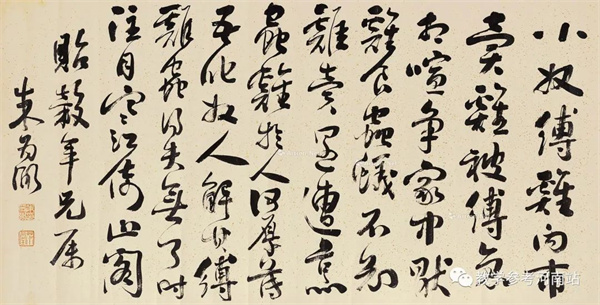 小奴縛雞向市
賣雞被縛急
相喧爭家中厭
雞食蟲蟻不知
雞賣還遭烹
蟲雞於人何厚薄
吾叱奴人解其縛
雞蟲得失無了時
注目寒江倚山閣
貽穀年兄屬
朱為弼
教学参考河南站